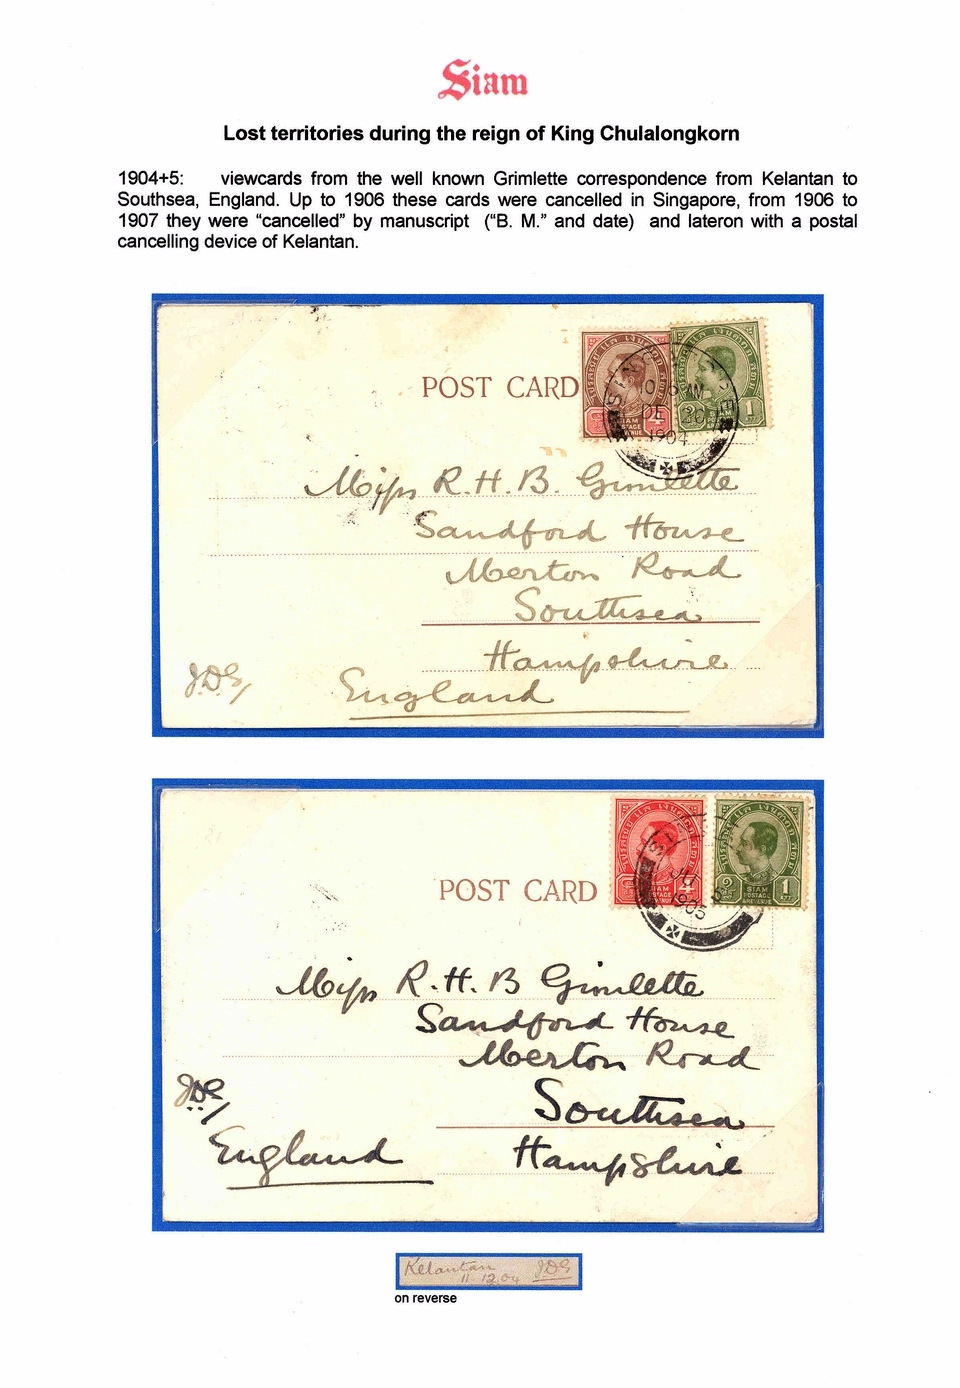 Siam
Lost territories during the reign of King Chulalongkorn
1904+5: viewcards from the well known Grimlette correspondence from Kelantan to
Southsea, England. Up to 1906 these cards were cancelled in Singapore, from 1906 to
1907 they were “cancelled” by manuscript (“B. M.” and date) and lateron with a postal
cancelling device of Kelantan.
POST CARD
SIAM
POSTAGE
& REVENUE
4
SIAM
POSTAGE
& REVENUE
1
DE 20
1904
Miss R. H. B. Gimlette
Sandford House
Merton Road
Southsea
Hampshire
J.D.G/
England
POST CARD
SIAM
POSTAGE
& REVENUE
4
SIAM
POSTAGE
& REVENUE
1
JU
1905
Miss R. H. B Gimlette
Sandford House
Merton Road
JDG/
Southsea
England
Hampshire
Kelantan
11 12.04 JDG
on reverse